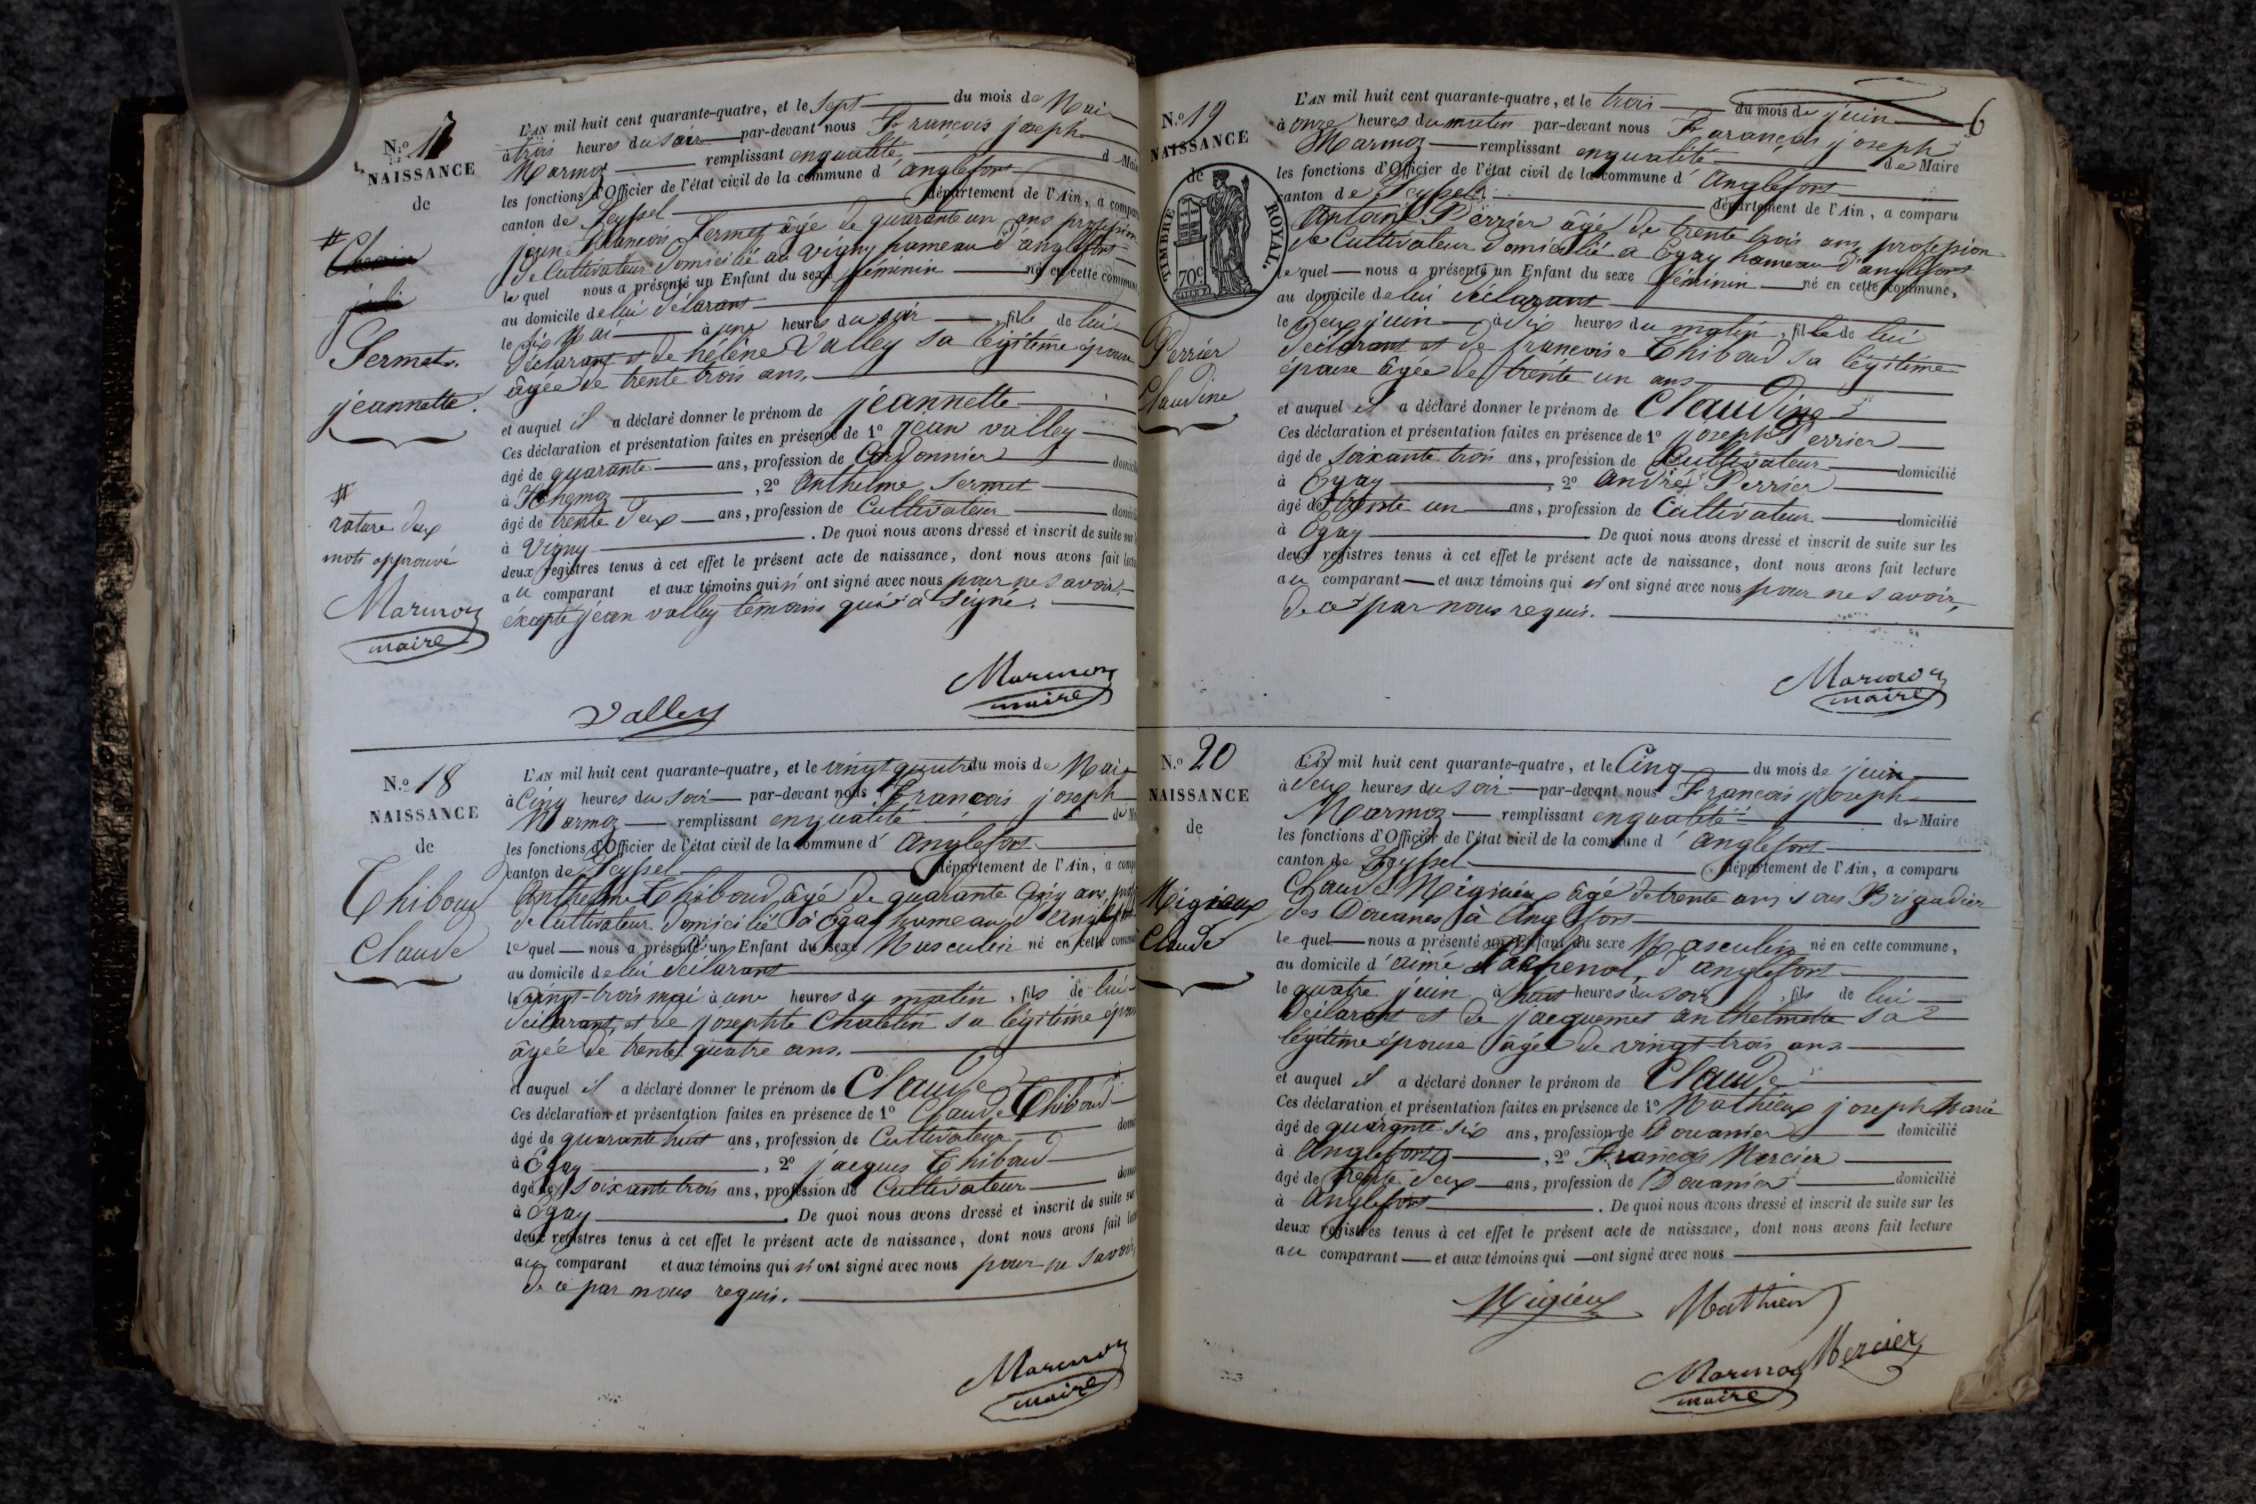 N.º 17
NAISSANCE
de
#
Sermet
jeannette.
#
rature deux
mots approuvé
Marmoz
maire
L'AN mil huit cent quarante-quatre, et le sept du mois de Mai
à trois heures du soir par-devant nous François joseph
Marmoz remplissant enqualité d Mai
les fonctions d'Officier de l'état civil de la commune d' anglefort
canton de Seyssel département de l'Ain, a compa
jean François Sermet âgé de quarante un ans profession
de Cultivateur domicilié au vigny hameau d'anglefort
le quel nous a présenté un Enfant du sexe féminin né en cette commune
au domicile de lui déclarant
le six Mai à une heures du soir, fille de lui
déclarant et de hélène Valley sa légitime épouse
âgée de trente trois ans.
et auquel il a déclaré donner le prénom de jeannette
Ces déclaration et présentation faites en présence de 1º jean valley
âgé de quarante ans, profession de Cordonnier domicilié
à , 2º anthelme Sermet
âgé de trente deux ans, profession de Cultivateur domicilié
à vigny . De quoi nous avons dressé et inscrit de suite sur
deux registres tenus à cet effet le présent acte de naissance, dont nous avons fait lecture
au comparant et aux témoins qui n'ont signé avec nous pour ne savoir
éxcepté jean valley témoins qui à signé.
Valley
Marmoz
maire
N.º 18
NAISSANCE
de
Thiboud
Claude
L'AN mil huit cent quarante-quatre, et le vingt quatre du mois de Mai
à Cinq heures du soir par-devant nous François joseph
Marmoz remplissant enqualité de M
les fonctions d'Officier de l'état civil de la commune d' anglefort
canton de Seyssel département de l'Ain, a comp
Anthelme Thiboud âgé de quarante Cinq ans prof
de Cultivateur domicilié à Egay hameau d'anglefort
le quel nous a présenté un Enfant du sexe Masculin né en cette commune
au domicile de lui déclarant
le vingt-trois mai à une heures du matin, fils de lui
déclarant, et de josephte Chatelin sa légitime épouse
âgée de trente quatre ans.
et auquel il a déclaré donner le prénom de Claude
Ces déclaration et présentation faites en présence de 1º Claude Thiboud
âgé de quarante huit ans, profession de Cultivateur domi
à Egay , 2º jacques Thiboud
âgé de soixante trois ans, profession de Cultivateur domi
à Egay . De quoi nous avons dressé et inscrit de suite sur
deux registres tenus à cet effet le présent acte de naissance, dont nous avons fait lec
au comparant et aux témoins qui n'ont signé avec nous pour ne savoir
de ce par nous requis.
Marmoz
maire
6
N.º 19
NAISSANCE
de
TIMBRE ROYAL.
70c
Perrier
Claudine
L'AN mil huit cent quarante-quatre, et le trois du mois de juin
à onze heures du matin par-devant nous François joseph
Marmoz remplissant enqualité de Maire
les fonctions d'Officier de l'état civil de la commune d' Anglefort
canton de Seyssel département de l'Ain, a comparu
Antoine Perrier âgé de trente trois ans profession
de Cultivateur domicilié a Egay hameau d'anglefort
le quel nous a présenté un Enfant du sexe féminin né en cette commune,
au domicile de lui déclarant
le deux juin à dix heures du matin, fille de lui
déclarant et de françoise Thiboud sa légitime
épouse âgée de trente un ans
et auquel il a déclaré donner le prénom de Claudine
Ces déclaration et présentation faites en présence de 1º joseph Perrier
âgé de soixante trois ans, profession de Cultivateur domicilié
à Egay , 2º andré Perrier
âgé de trente un ans, profession de Cultivateur domicilié
à Egay De quoi nous avons dressé et inscrit de suite sur les
deux registres tenus à cet effet le présent acte de naissance, dont nous avons fait lecture
au comparant et aux témoins qui n'ont signé avec nous pour ne savoir,
de ce par nous requis.
Marmoz
maire
N.º 20
NAISSANCE
de
Migieux
Claude
L'AN mil huit cent quarante-quatre, et le Cinq du mois de juin
à deux heures du soir par-devant nous François joseph
Marmoz remplissant enqualité de Maire
les fonctions d'Officier de l'état civil de la commune d' anglefort
canton de Seyssel département de l'Ain, a comparu
Claude Migieux âgé de trente ans sous Brigadier
des Douanes à Anglefort
le quel nous a présenté un Enfant du sexe Masculin né en cette commune,
au domicile d'aimé d'anglefort
le quatre juin à huit heures du soir, fils de lui
déclarant et de jacquemet anthelmette sa
légitime épouse âgée de vingt-trois ans
et auquel il a déclaré donner le prénom de Claude
Ces déclaration et présentation faites en présence de 1º Mathieux joseph Marie
âgé de quarante six ans, profession de Douanier domicilié
à Anglefort , 2º François Mercier
âgé de trente deux ans, profession de Douanier domicilié
à Anglefort . De quoi nous avons dressé et inscrit de suite sur les
deux registres tenus à cet effet le présent acte de naissance, dont nous avons fait lecture
au comparant et aux témoins qui ont signé avec nous
Migieux Mathieu
Marmoz Mercier
maire